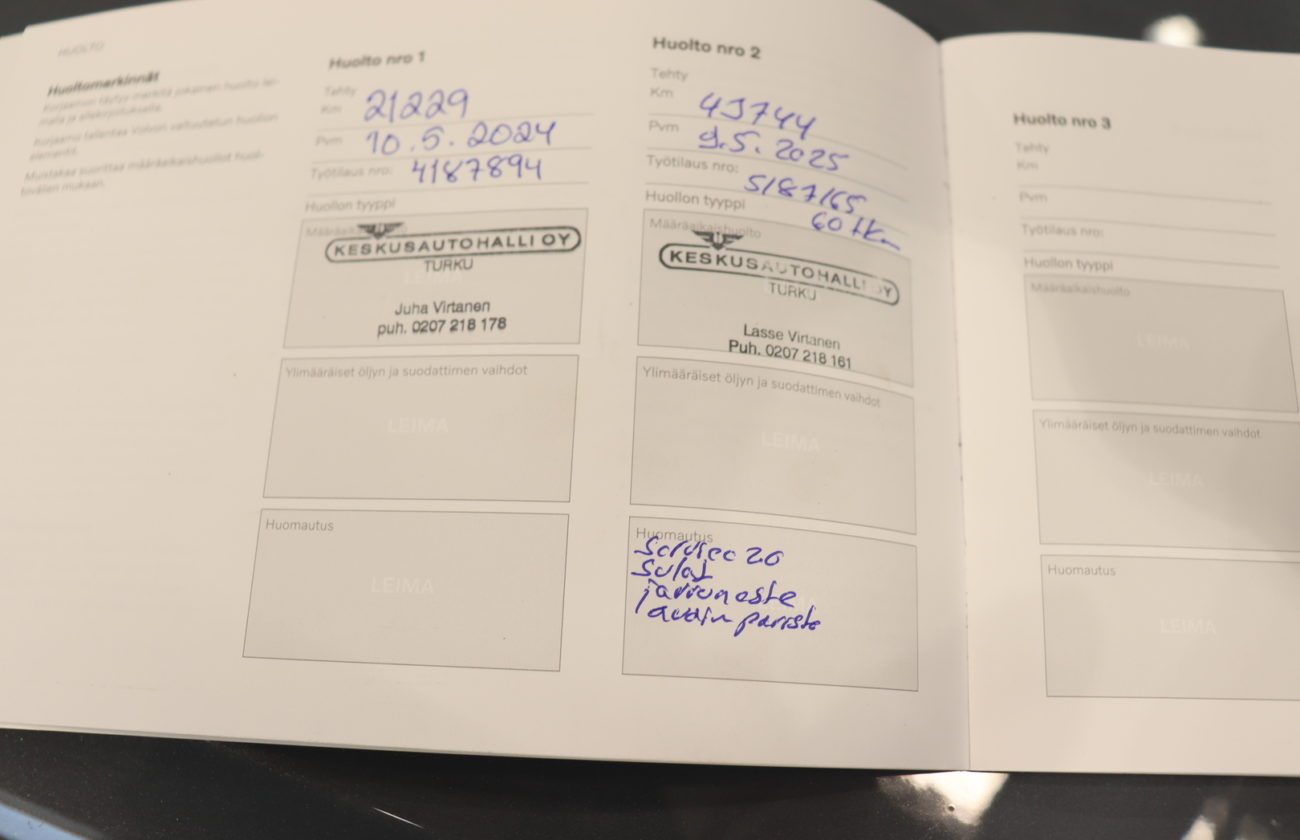 HUOLTO
Huoltomerkinnät
Korjaamon täytyy merkitä jokainen huolto lei-
malla ja allekirjoituksella.
Korjaamo tallentaa Volvon valtuutetun huollon
Muistakaa suorittaa määräaikaishuollot huol-
mukaan.
Huolto nro 1
Tehty
Km 21229
Pvm 10.5.2024
Työtilaus nro: 4187894
Huollon tyyppi
KESKUSAUTOHALLI OY
TURKU
LEIMA
Juha Virtanen
puh. 0207 218 178
Ylimääräiset öljyn ja suodattimen vaihdot
LEIMA
Huomautus
LEIMA
Huolto nro 2
Tehty
Km 43744
Pvm 9.5.2025
Työtilaus nro: 5187165
Huollon tyyppi 60 tkm
Määräaikaishuolto
KESKUSAUTOHALLI OY
TURKU
Lasse Virtanen
Puh. 0207 218 161
Ylimääräiset öljyn ja suodattimen vaihdot
LEIMA
Huomautus
Service 2.0
Sulat
jarruneste
avain paristo
Huolto nro 3
Tehty
Km
Pvm
Työtilaus nro:
Huollon tyyppi
Määräaikaishuolto
LEIMA
Ylimääräiset öljyn ja suodattimen vaihdot
LEIMA
Huomautus
LEIMA